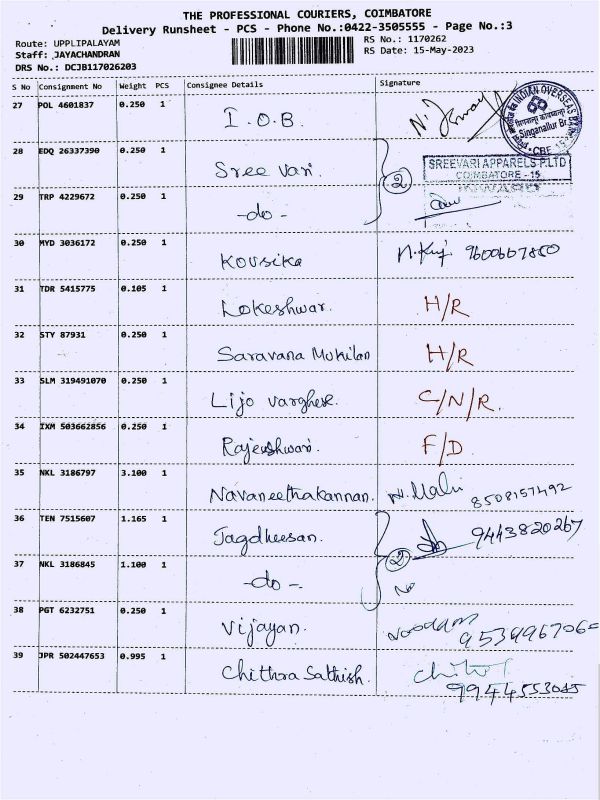 THE PROFESSIONAL COURIERS, COIMBATORE
Delivery Runsheet - PCS - Phone No.:0422-3505555 - Page No.:3
Route: UPPLIPALAYAM
RS No.: 1170262
Staff: JAYACHANDRAN
RS Date: 15-May-2023
DRS No.: DCJB117026203
S No Consignment No Weight PCS Consignee Details Signature
27 POL 4601837 0.250 1 I.O.B
INDIAN OVERSEAS BANK
Singanallur Br.
CBE
28 EDQ 26337390 0.250 1 Sree Vari. 2
SREEVARI APPARELS P.LTD
COIMBATORE - 15
29 TRP 4229672 0.250 1 -do-
30 MYD 3036172 0.250 1 Kousika 9600607850
31 TDR 5415775 0.105 1 Lokeshwar. H/R
32 STY 87931 0.250 1 Saravana Mukilan H/R
33 SLM 319491070 0.250 1 Lijo varghese. C/N/R.
34 IXM 503662856 0.250 1 Rajeshwari. F/D.
35 NKL 3186797 3.100 1 Navaneethakannan. 8508157492
36 TEN 7515607 1.165 1 Jagdheesan. 2 9443820267
37 NKL 3186845 1.100 1 -do-.
38 PGT 6232751 0.250 1 Vijayan.
39 JPR 502447653 0.995 1 Chithra Sathish.